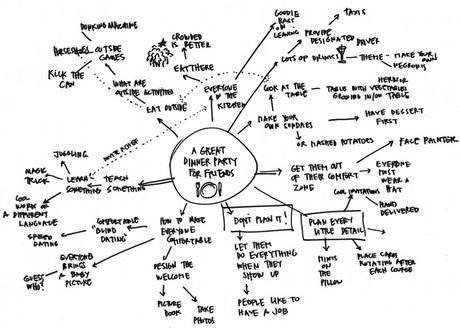 DUNKING MACHINE
HORSESHOES
OUTSIDE
GAMES
KICK THE
CAN
WHAT ARE
OUTSIDE ACTIVITIES
EAT OUTSIDE
CROWDED
IS BETTER
EAT THERE
EVERYONE
IN THE
KITCHEN
GOODIE
BAGS
ON
LEAVING
PROVIDE
DESIGNATED
DRIVER
TAXIS
LOTS OF DRINKS
THEME
MAKE YOUR
OWN
NEGRONIS
LOOK AT THE
TABLE
TABLE WITH VEGETABLES
GROWING IN/ON TABLE
MAKE YOUR
OWN SUNDAES
HAVE DESSERT
FIRST
OR MASHED POTATOES
A GREAT
DINNER PARTY
FOR FRIENDS
GET THEM OUT
OF THEIR COMFORT
ZONE
FACE PAINTER
EVERYONE
MUST
WEAR A
HAT
COOL INVITATIONS
HAND
DELIVERED
PLAN EVERY
LITTLE DETAIL
MINTS
ON THE
PILLOW
PLACE CARDS
ROTATING AFTER
EACH COURSE
DON'T PLAN IT!
LET THEM
DO EVERYTHING
WHEN THEY
SHOW UP
PEOPLE LIKE TO
HAVE A JOB
HOW TO MAKE
EVERYONE
COMFORTABLE
DESIGN THE
WELCOME
PICTURE
BOOK
TAKE
PHOTOS
COMFORTABLE
"BLIND
DATING"
SPEED
DATING
EVERYONE
BRINGS
A BABY
PICTURE
GUESS
WHO?
TEACH
SOMETHING
LEARN
SOMETHING
JUGGLING
MAGIC
TRICK
COOL WORK OF
A DIFFERENT
LANGUAGE